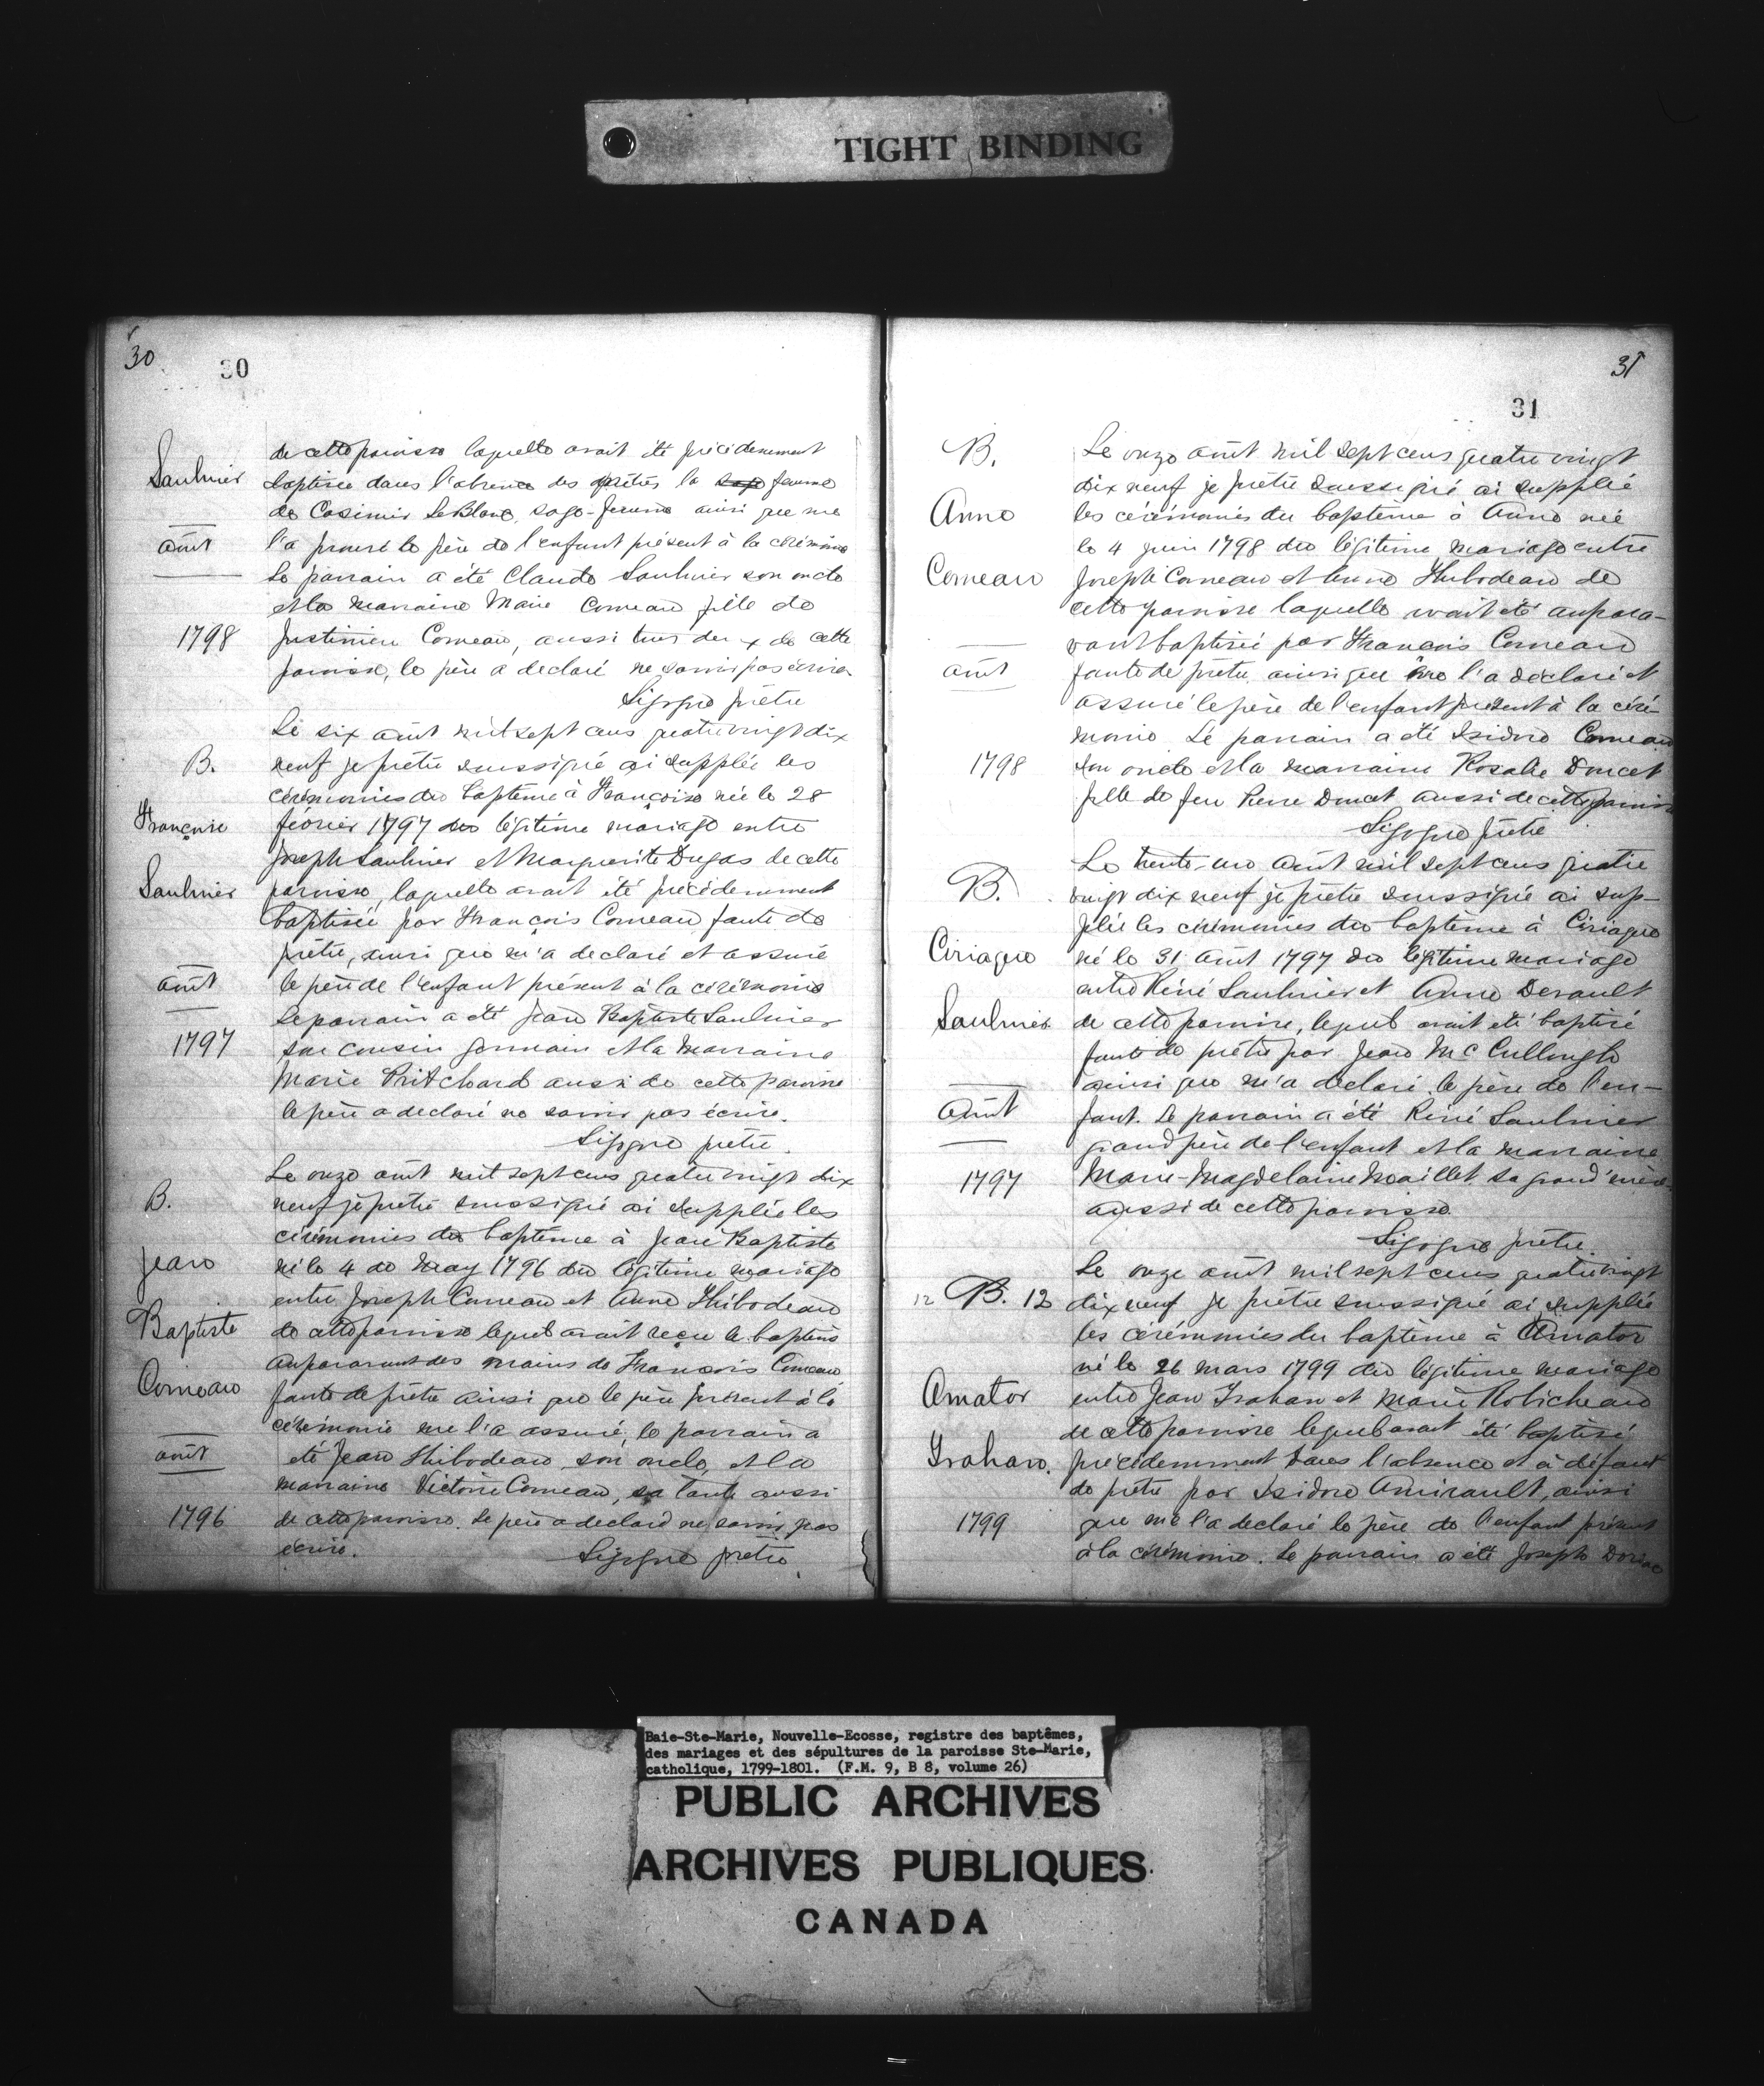 TIGHT BINDING
30
30
Saulnier
août
1798
de cette paroisse laquelle avait été précédemment
baptisée dans l'absence des prêtres la sage femme
de Casimir LeBlanc, sage-femme ainsi que me
l'a prouvé le père de l'enfant présent à la cérémonie
Le parrain a été Claude Saulnier son oncle
et la marraine Marie Comeau fille de
Justinien Comeau, aussi tous deux de cette
paroisse, le père a declaré ne savoir pas écrire
Sigogne prêtre
B.
Françoise
Saulnier
août
1797
Le six août mil sept cens quatre vingt dix
neuf je prêtre soussigné ai supplée les
cérémonies du baptême à Françoise née le 28
février 1797 du légitime mariage entre
Joseph Saulnier et Marguerite Dugas de cette
paroisse, laquelle avait été précédemment
baptisée par François Comeau faute de
prêtre, ainsi que m'a declaré et assuré
le père de l'enfant présent à la cérémonie
Le parrain a été Jean Baptiste Saulnier
son cousin germain et la marraine
Marie Pritchard aussi de cette paroisse
le père a declaré ne savoir pas écrire.
Sigogne prêtre.
B.
Jean
Baptiste
Comeau
août
1796
Le onze août mil sept cens quatre vingt dix
neuf je prêtre soussigné ai supplée les
cérémonies du baptême à Jean Baptiste
né le 4 de may 1796 du légitime mariage
entre Joseph Comeau et Anne Thibodeau
de cette paroisse lequel avait reçu le baptême
auparavant des mains de François Comeau
faute de prêtre ainsi que le père présent à la
cérémonie me l'a assuré, le parrain a
été Jean Thibodeau son oncle, et la
marraine Victoire Comeau, sa tante aussi
de cette paroisse. Le père a declaré ne savoir pas
écrire. Sigogne prêtre
31
31
B.
Anne
Comeau
août
1798
Le onze août mil sept cens quatre vingt
dix neuf je prêtre soussigné ai supplée
les cérémonies du baptême à Anne née
le 4 juin 1798 du légitime mariage entre
Joseph Comeau et Anne Thibodeau de
cette paroisse laquelle avait été aupara-
vant baptisée par François Comeau
faute de prêtre ainsi que me l'a déclaré et
assuré le père de l'enfant présent à la céré-
monie Le parrain a été Isidore Comeau
son oncle et la marraine Rosalie Doucet
fille de feu Pierre Doucet aussi de cette paroisse
Sigogne prêtre
B.
Ciriaque
Saulnier
août
1797
Le trente-un août mil sept cens quatre
vingt dix neuf je prêtre soussigné ai sup-
plée les cérémonies du baptême à Ciriaque
né le 31 août 1797 du légitime mariage
entre Réné Saulnier et Anne
de cette paroisse, lequel avait été baptisé
faute de prêtre par Jean McCullough
ainsi que m'a declaré le père de l'en-
fant. Le parrain a été Réné Saulnier
grand père de l'enfant et la marraine
Marie-Magdelaine Maillet sa grand'mère
aussi de cette paroisse.
Sigogne prêtre.
12 B. 12
Amator
Trahan.
1799
Le onze août mil sept cens quatre vingt
dix neuf je prêtre soussigné ai supplée
les cérémonies du baptême à Amator
né le 26 mars 1799 du légitime mariage
entre Jean Trahan et Marie Robicheau
de cette paroisse lequel avait été baptisé
précédemment dans l'absence et à défaut
de prêtre par Isidore Amirault, ainsi
que me l'a declaré le père de l'enfant présent
à la cérémonie. Le parrain a été Joseph
Baie-Ste-Marie, Nouvelle-Ecosse, registre des baptêmes,
des mariages et des sépultures de la paroisse Ste-Marie,
catholique, 1799-1801. (F.M. 9, B 8, volume 26)
PUBLIC ARCHIVES
ARCHIVES PUBLIQUES
CANADA